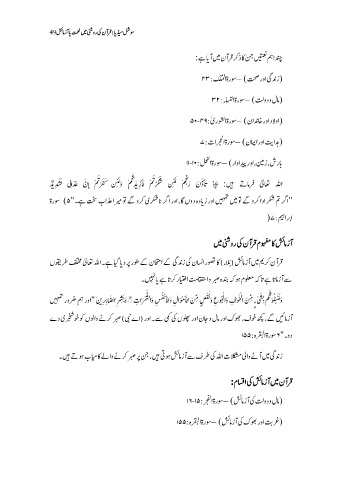 سوشل میڈیا: القرآن کی روشنی میں نعمت یا آزمائش 49
چند اہم نعمتیں جن کا ذکر قرآن میں آیا ہے:
(زندگی اور صحت) – سورۃ الملک: ۲۳
(مال و دولت) – سورۃ النساء: ۳۲
(اولاد اور خاندان) – سورۃ الشوریٰ: ۴۹-۵۰
(ہدایت اور ایمان) – سورۃ الحجرات: ۷
بارش، زمین، اور پیداوار) – سورۃ النحل: ۱۰-۱۱
اللہ تعالیٰ فرماتے ہیں: وَإِذْ تَأَذَّنَ رَبُّكُمْ لَئِن شَكَرْتُمْ لَأَزِيدَنَّكُمْ وَلَئِن كَفَرْتُمْ إِنَّ عَذَابِي لَشَدِيدٌ
"اگر تم شکر ادا کرو گے تو میں تمہیں اور زیادہ دوں گا، اور اگر ناشکری کرو گے تو میرا عذاب سخت ہے۔"۵) سورۃ
ابراہیم: ۷(
آزمائش کا مفہوم قرآن کی روشنی میں
قرآن کریم میں آزمائش [بلاء] کا تصور انسان کی زندگی کے امتحان کے طور پر دیا گیا ہے۔ اللہ تعالیٰ مختلف طریقوں
سے آزماتا ہے تاکہ معلوم ہو کہ بندہ صبر و استقامت اختیار کرتا ہے یا نہیں۔
وَلَنَبْلُوَنَّكُم بِشَيْءٍ مِّنَ الْخَوْفِ وَالْجُوعِ وَنَقْصٍ مِّنَ الْأَمْوَالِ وَالْأَنفُسِ وَالثَّمَرَاتِ ۗ وَبَشِّرِ الصَّابِرِينَ "اور ہم ضرور تمہیں
آزمائیں گے، کچھ خوف، بھوک اور مال و جان اور پھلوں کی کمی سے۔ اور (اے نبی) صبر کرنے والوں کو خوشخبری دے
دو۔"۶ سورۃ البقرہ: ۱۵۵
زندگی میں آنے والی مشکلات اللہ کی طرف سے آزمائش ہوتی ہیں، جن پر صبر کرنے والے کامیاب ہوتے ہیں۔
قرآن میں آزمائش کی اقسام:
(مال و دولت کی آزمائش) – سورۃ الفجر: ۱۵-۱۶
(غربت اور بھوک کی آزمائش) – سورۃ البقرہ: ۱۵۵